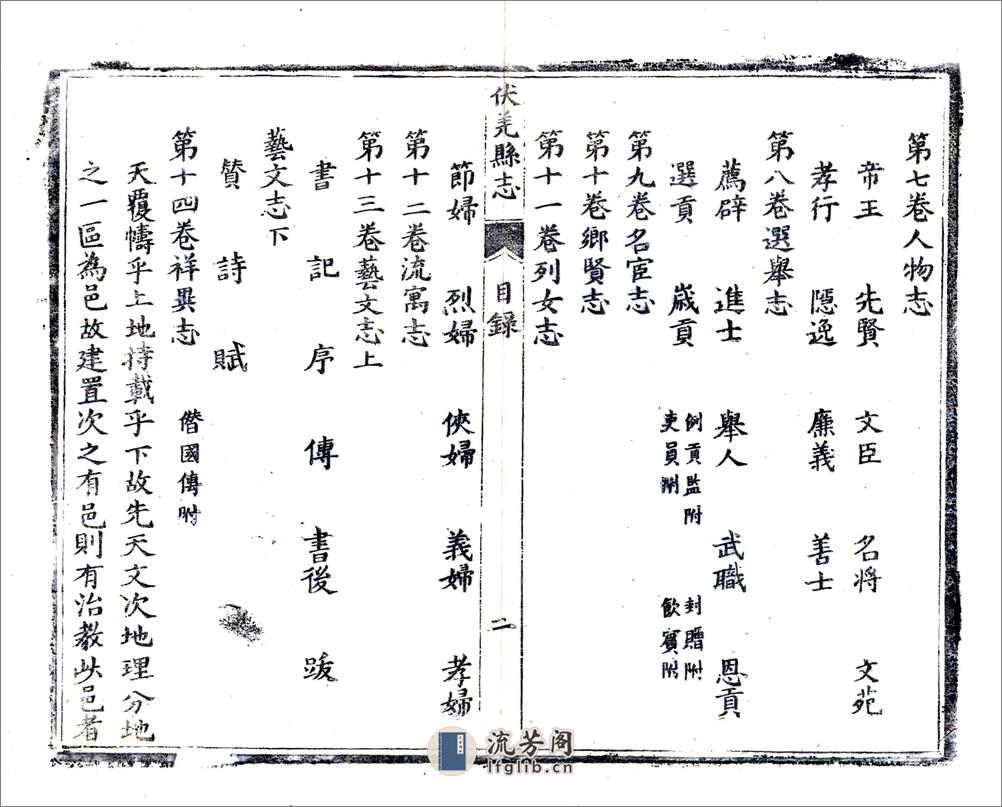 第七卷人物志
帝王 先賢 文臣 名将 文苑
孝行 隱逸 廉義 善士
第八卷選舉志
薦辟 進士 舉人 武職 恩貢
選貢 歲貢 例貢監附 吏員附 封贈附 飲賓附
第九卷名宦志
第十卷鄉賢志
第十一卷列女志
伏羌縣志 目錄 二
節婦 烈婦 俠婦 義婦 孝婦
第十二卷流寓志
第十三卷藝文志上
書 記 序 傳 書後 跋
藝文志下
賛 詩 賦
第十四卷祥異志 僭國傳附
天覆幬乎上地持載乎下故先天文次地理分地
之一區為邑故建置次之有邑則有治教此邑者
流芳阁
lfglib.cn